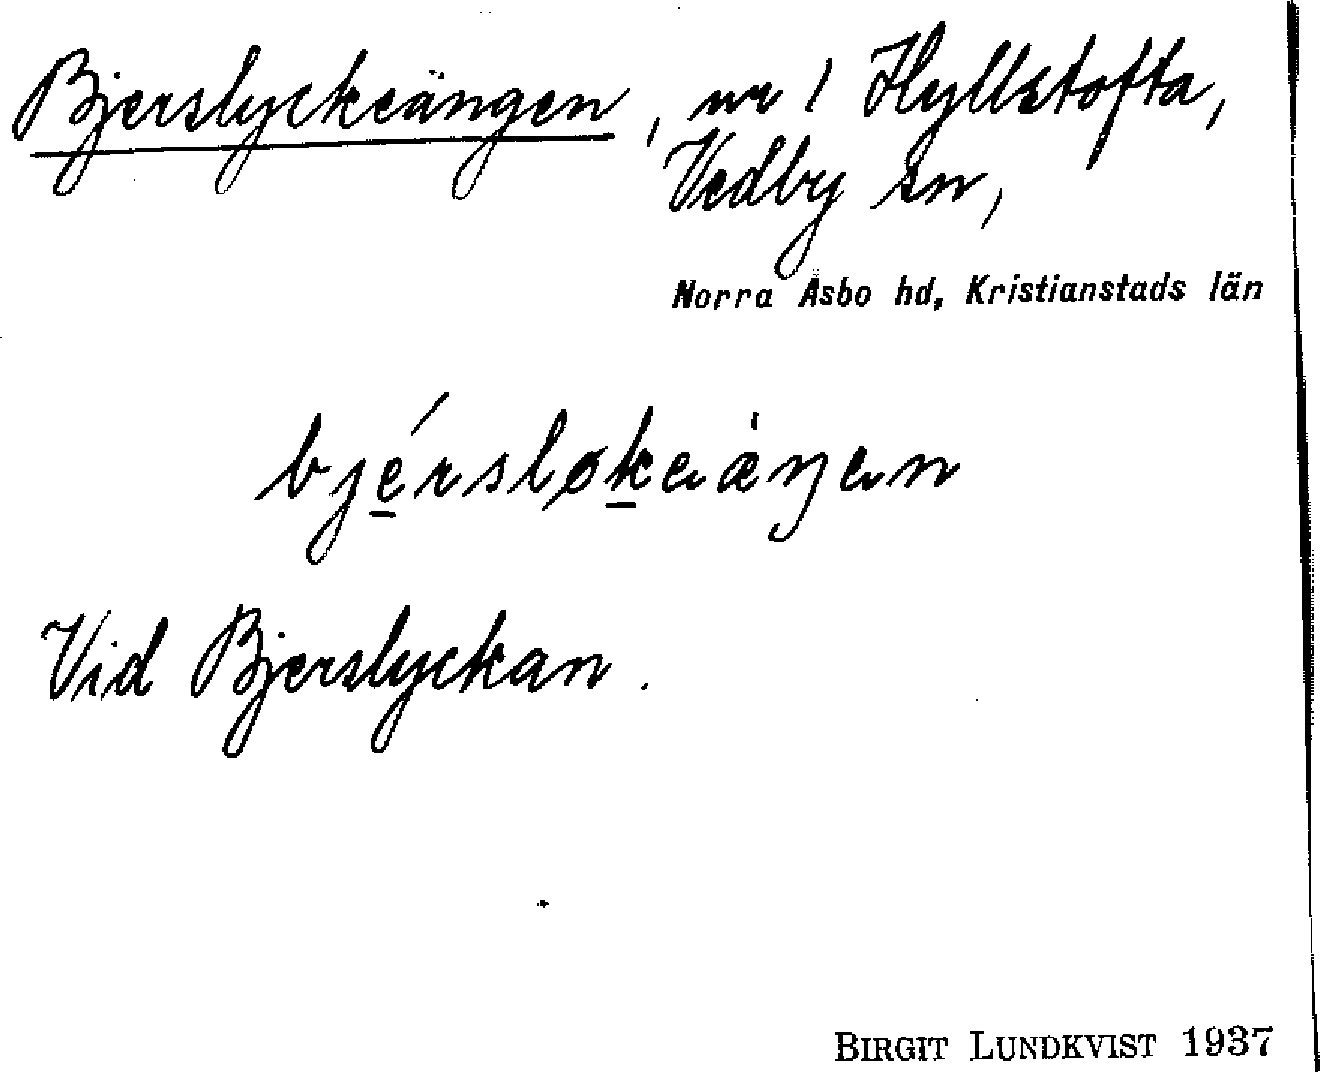 Bjerslyckeängen, nr 1 Hyllstofta,
Vedby sn,
Norra Åsbo hd, Kristianstads län
bjérsløkaæŋan
Vid Bjerslyckan.
BIRGIT LUNDKVIST 1937